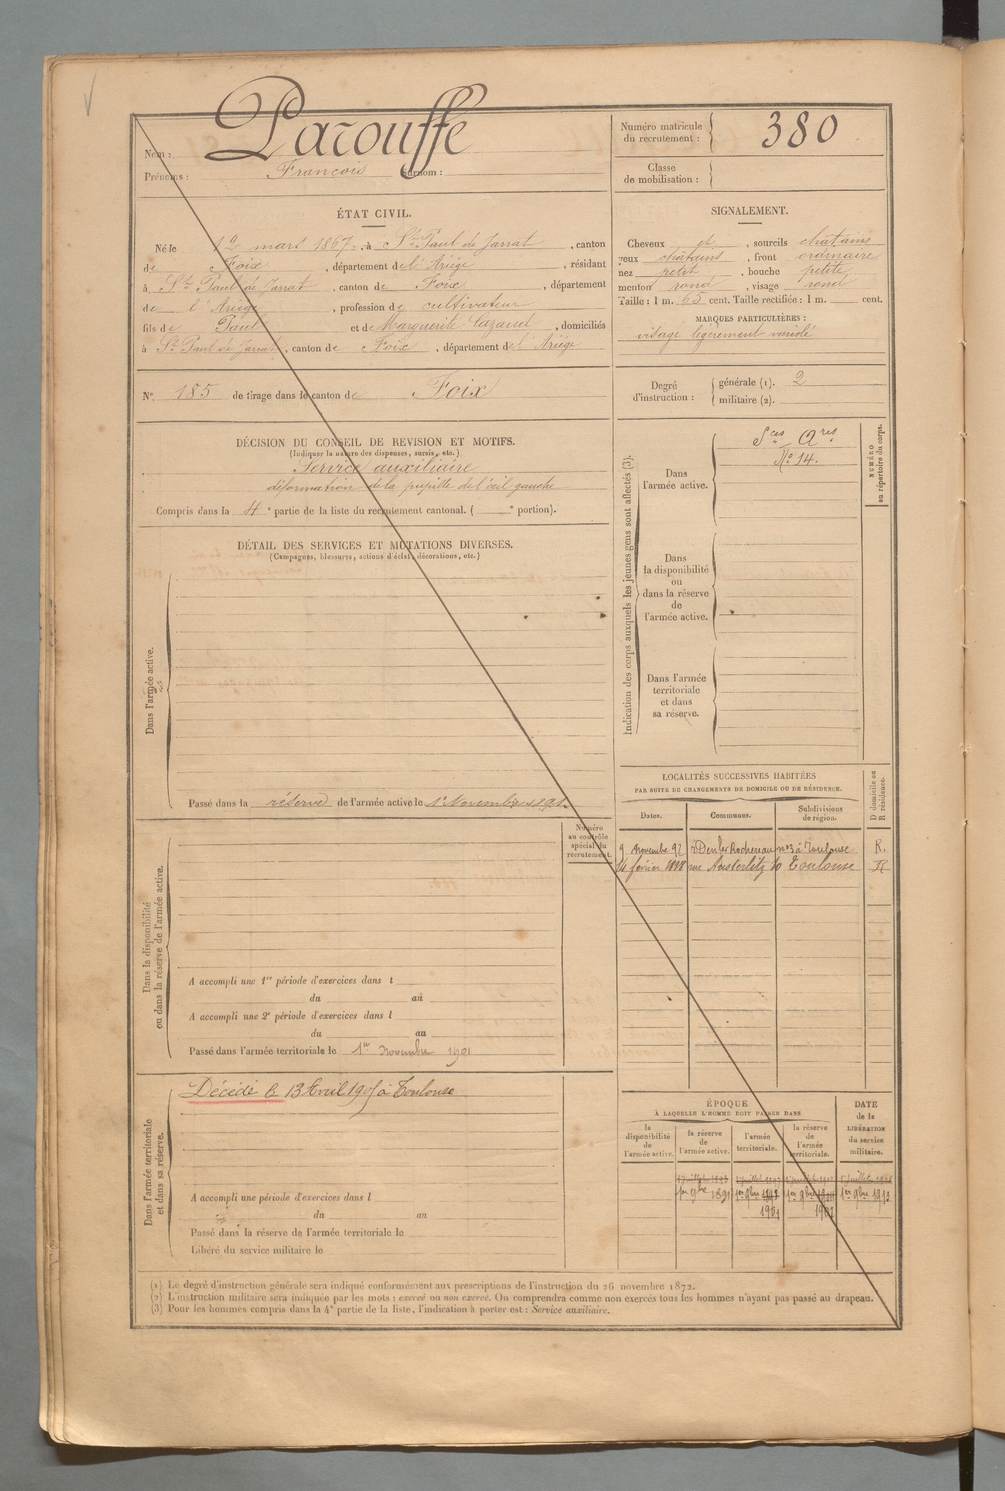 Larouffe
Nom :
Prénoms : François Surnom :
Numéro matricule du recrutement : 380
Classe de mobilisation :
ÉTAT CIVIL.
Né le 12 mars 1867, à St Paul de Jarrat, canton
de Foix, département de l'Ariège, résidant
à St Paul de Jarrat, canton de Foix, département
de l'Ariège, profession de cultivateur
fils de Paul et de Marguerite Cazaud, domiciliés
à St Paul de Jarrat, canton de Foix, département de l'Ariège
SIGNALEMENT.
Cheveux et, sourcils chatains
yeux chatains, front ordinaire
nez petit, bouche petite
menton rond, visage rond
Taille : 1 m. 65 cent. Taille rectifiée : 1 m. cent.
MARQUES PARTICULIÈRES :
visage légèrement variolé
N°. 185 de tirage dans le canton de Foix
Degré d'instruction : générale (1). 2
militaire (2).
DÉCISION DU CONSEIL DE REVISION ET MOTIFS.
(Indiquer la nature des dispenses, sursis, etc.)
Service auxiliaire
déformation de la pupille de l'œil gauche
Compris dans la 4e partie de la liste du recrutement cantonal. ( e portion).
DÉTAIL DES SERVICES ET MUTATIONS DIVERSES.
(Campagnes, blessures, actions d'éclat, décorations, etc.)
Dans l'armée active.
Passé dans la réserve de l'armée active le 1er Novembre 1891
Numéro au contrôle spécial du recrutement.
Dans la disponibilité ou dans la réserve de l'armée active.
A accompli une 1re période d'exercices dans l
du au
A accompli une 2e période d'exercices dans l
du au
Passé dans l'armée territoriale le 1er novembre 1901
Dans l'armée territoriale et dans sa réserve.
Décédé le 13 Avril 1905 à Toulouse
A accompli une période d'exercices dans l
du au
Passé dans la réserve de l'armée territoriale le
Libéré du service militaire le
Indication des corps auxquels les jeunes gens sont affectés (3).
NUMÉRO au répertoire du corps.
Dans l'armée active.
Sces Qres
No 14.
Dans la disponibilité ou dans la réserve de l'armée active.
Dans l'armée territoriale et dans sa réserve.
LOCALITÉS SUCCESSIVES HABITÉES
PAR SUITE DE CHANGEMENTS DE DOMICILE OU DE RÉSIDENCE.
D domicile ou R résidence.
Dates. Communes. Subdivisions de région.
9 Novembre 92 no 3 à Toulouse R.
14 février 1898 rue Austerlitz 10 Toulouse R
ÉPOQUE
À LAQUELLE L'HOMME DOIT PASSER DANS
DATE de la LIBÉRATION du service militaire.
la disponibilité de l'armée active.
la réserve de l'armée active.
l'armée territoriale.
la réserve de l'armée territoriale.
1er 9bre 1891 1er 9bre 1er 9bre 1er 9bre 1913
1901
(1) Le degré d'instruction générale sera indiqué conformément aux prescriptions de l'instruction du 26 novembre 1872.
(2) L'instruction militaire sera indiquée par les mots : exercé ou non exercé. On comprendra comme non exercés tous les hommes n'ayant pas passé au drapeau.
(3) Pour les hommes compris dans la 4e partie de la liste, l'indication à porter est : Service auxiliaire.